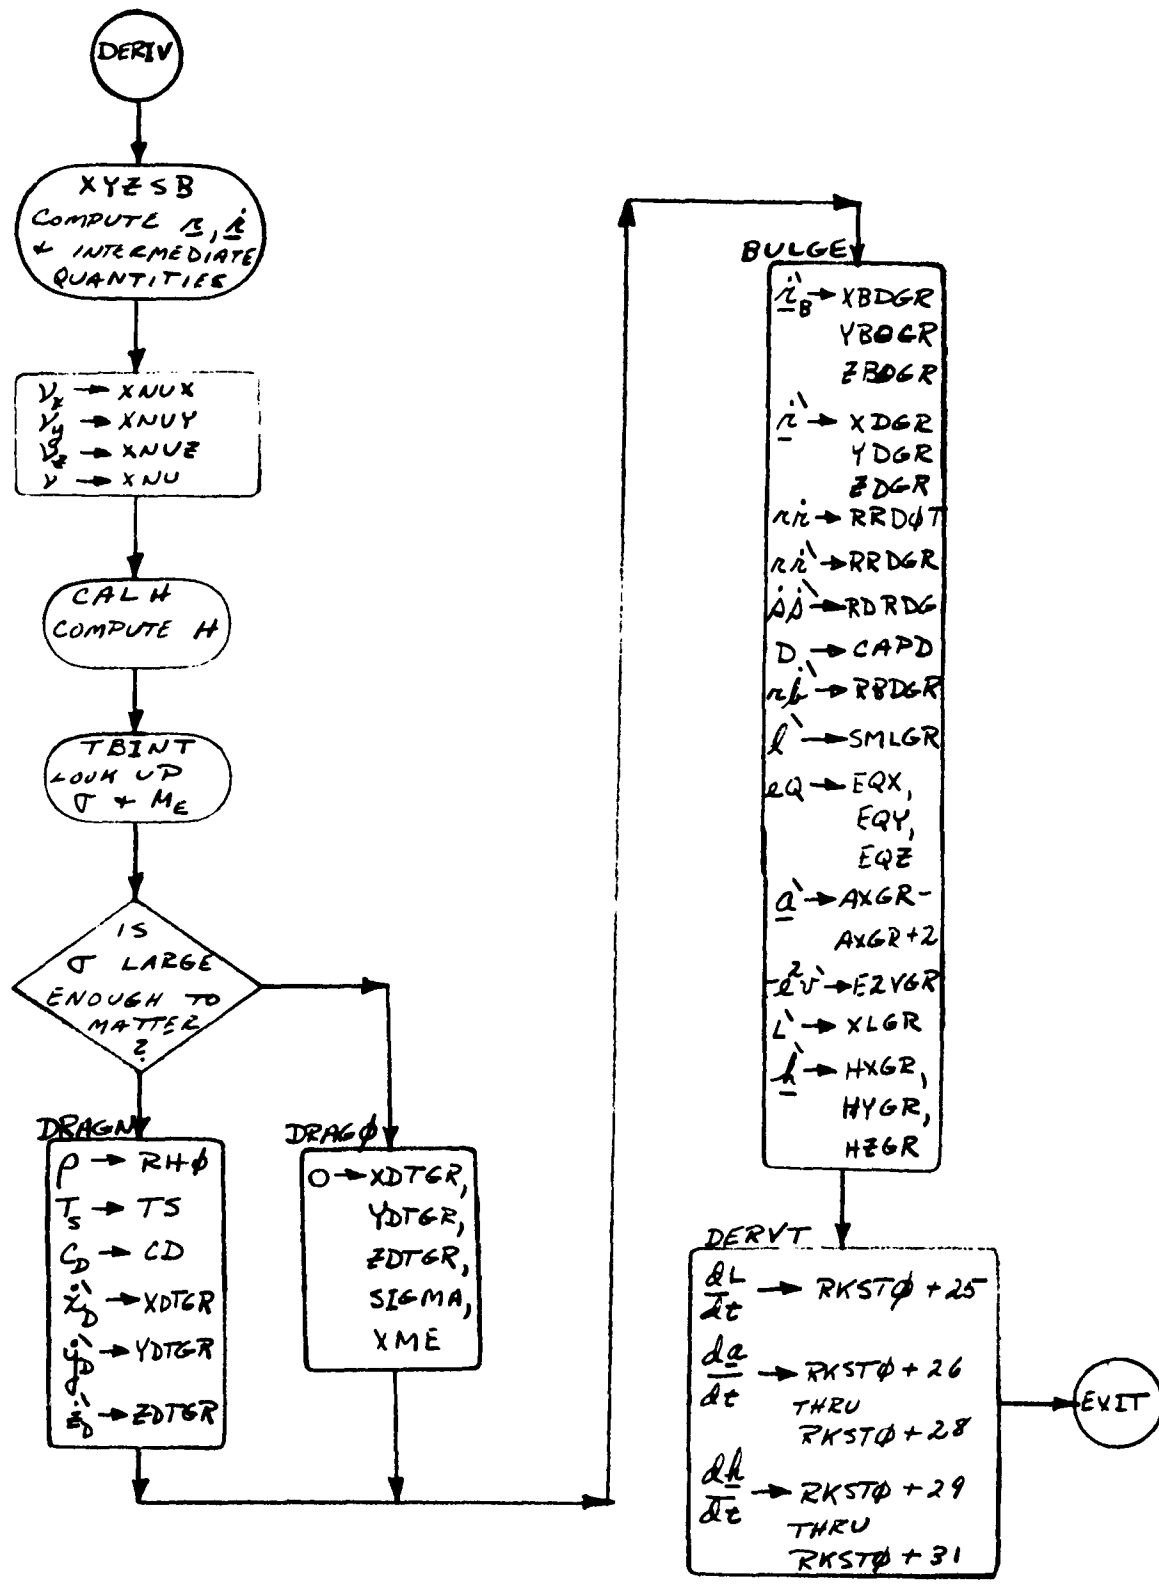 DERIV
XYZSB
COMPUTE r, ṙ
+ INTERMEDIATE
QUANTITIES
ν_x → XNUX
ν_y → XNUY
ν_z → XNUZ
ν → XNU
CALH
COMPUTE H
TBINT
LOOK UP
σ + M_E
IS
σ LARGE
ENOUGH TO
MATTER
?
DRAGN
ρ → RHϕ
T_s → TS
C_D → CD
ẋ`_D → XDTGR
ẏ`_D → YDTGR
ż`_D → ZDTGR
DRAGϕ
O → XDTGR,
YDTGR,
ZDTGR,
SIGMA,
XME
BULGE
ṙ`_B → XBDGR
YBDGR
ZBDGR
ṙ` → XDGR
YDGR
ZDGR
rṙ → RRDϕT
rṙ` → RRDGR
ṡṡ` → RDRDG
D → CAPD
rḃ` → RBDGR
l` → SMLGR
eQ → EQX,
EQY,
EQZ
a` → AXGR-
AXGR+2
e²v` → E2VGR
L` → XLGR
h` → HXGR,
HYGR,
HZGR
DERVT
dL/dt → RKSTϕ +25
da/dt → RKSTϕ +26
THRU
RKSTϕ +28
dh/dt → RKSTϕ +29
THRU
RKSTϕ +31
EXIT